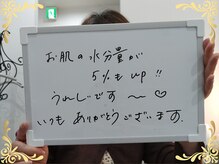 お肌の水分量が
5%もup!!
うれしいです〜♡
いつもありがとうございます.